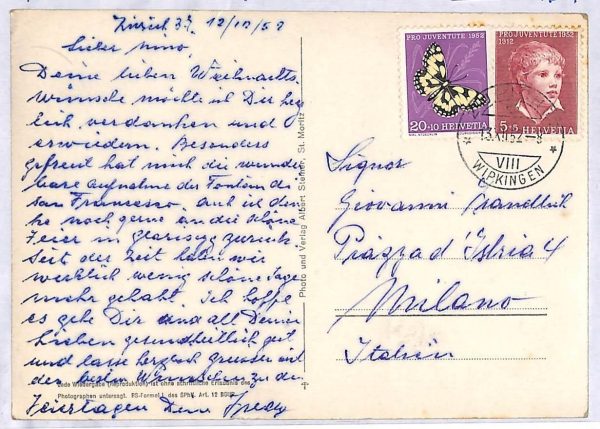 Zürich 37. 12/12/52
Lieber Nino,
Deine lieben Weihnachts
wünsche möchte ich Dir herz
lich verdanken und
erwiedern. Besonders
gefreut hat mich die wunder
bare Aufnahme des Fontana di
San Francesco. Auch ich den
ke noch gerne an die schöne
Feier in zurück.
Seit der Zeit haben wir
wirklich wenig schöne Tage
mehr gehabt. Ich hoffe
es gehe Dir und all Deinen
Lieben gesundheitlich gut
und lasse herzlich grüssen mit
den besten Wünschen zu den
Feiertagen Dein
Jede Wiedergabe (Reproduktion) ist ohne schriftliche Erlaubnis des
Photographen untersagt. RS-Formel I. des SPhV. Art. 12
Photo und Verlag Albert Steiner, St. Moritz
PRO JUVENTUTE 1952
20+10 HELVETIA
PRO JUVENTUTE 1952
1912
5+5 HELVETIA
13.XII.52
VIII
WIPKINGEN
Signor
Giovanni
Piazza d'Istria 4
Milano
Italien